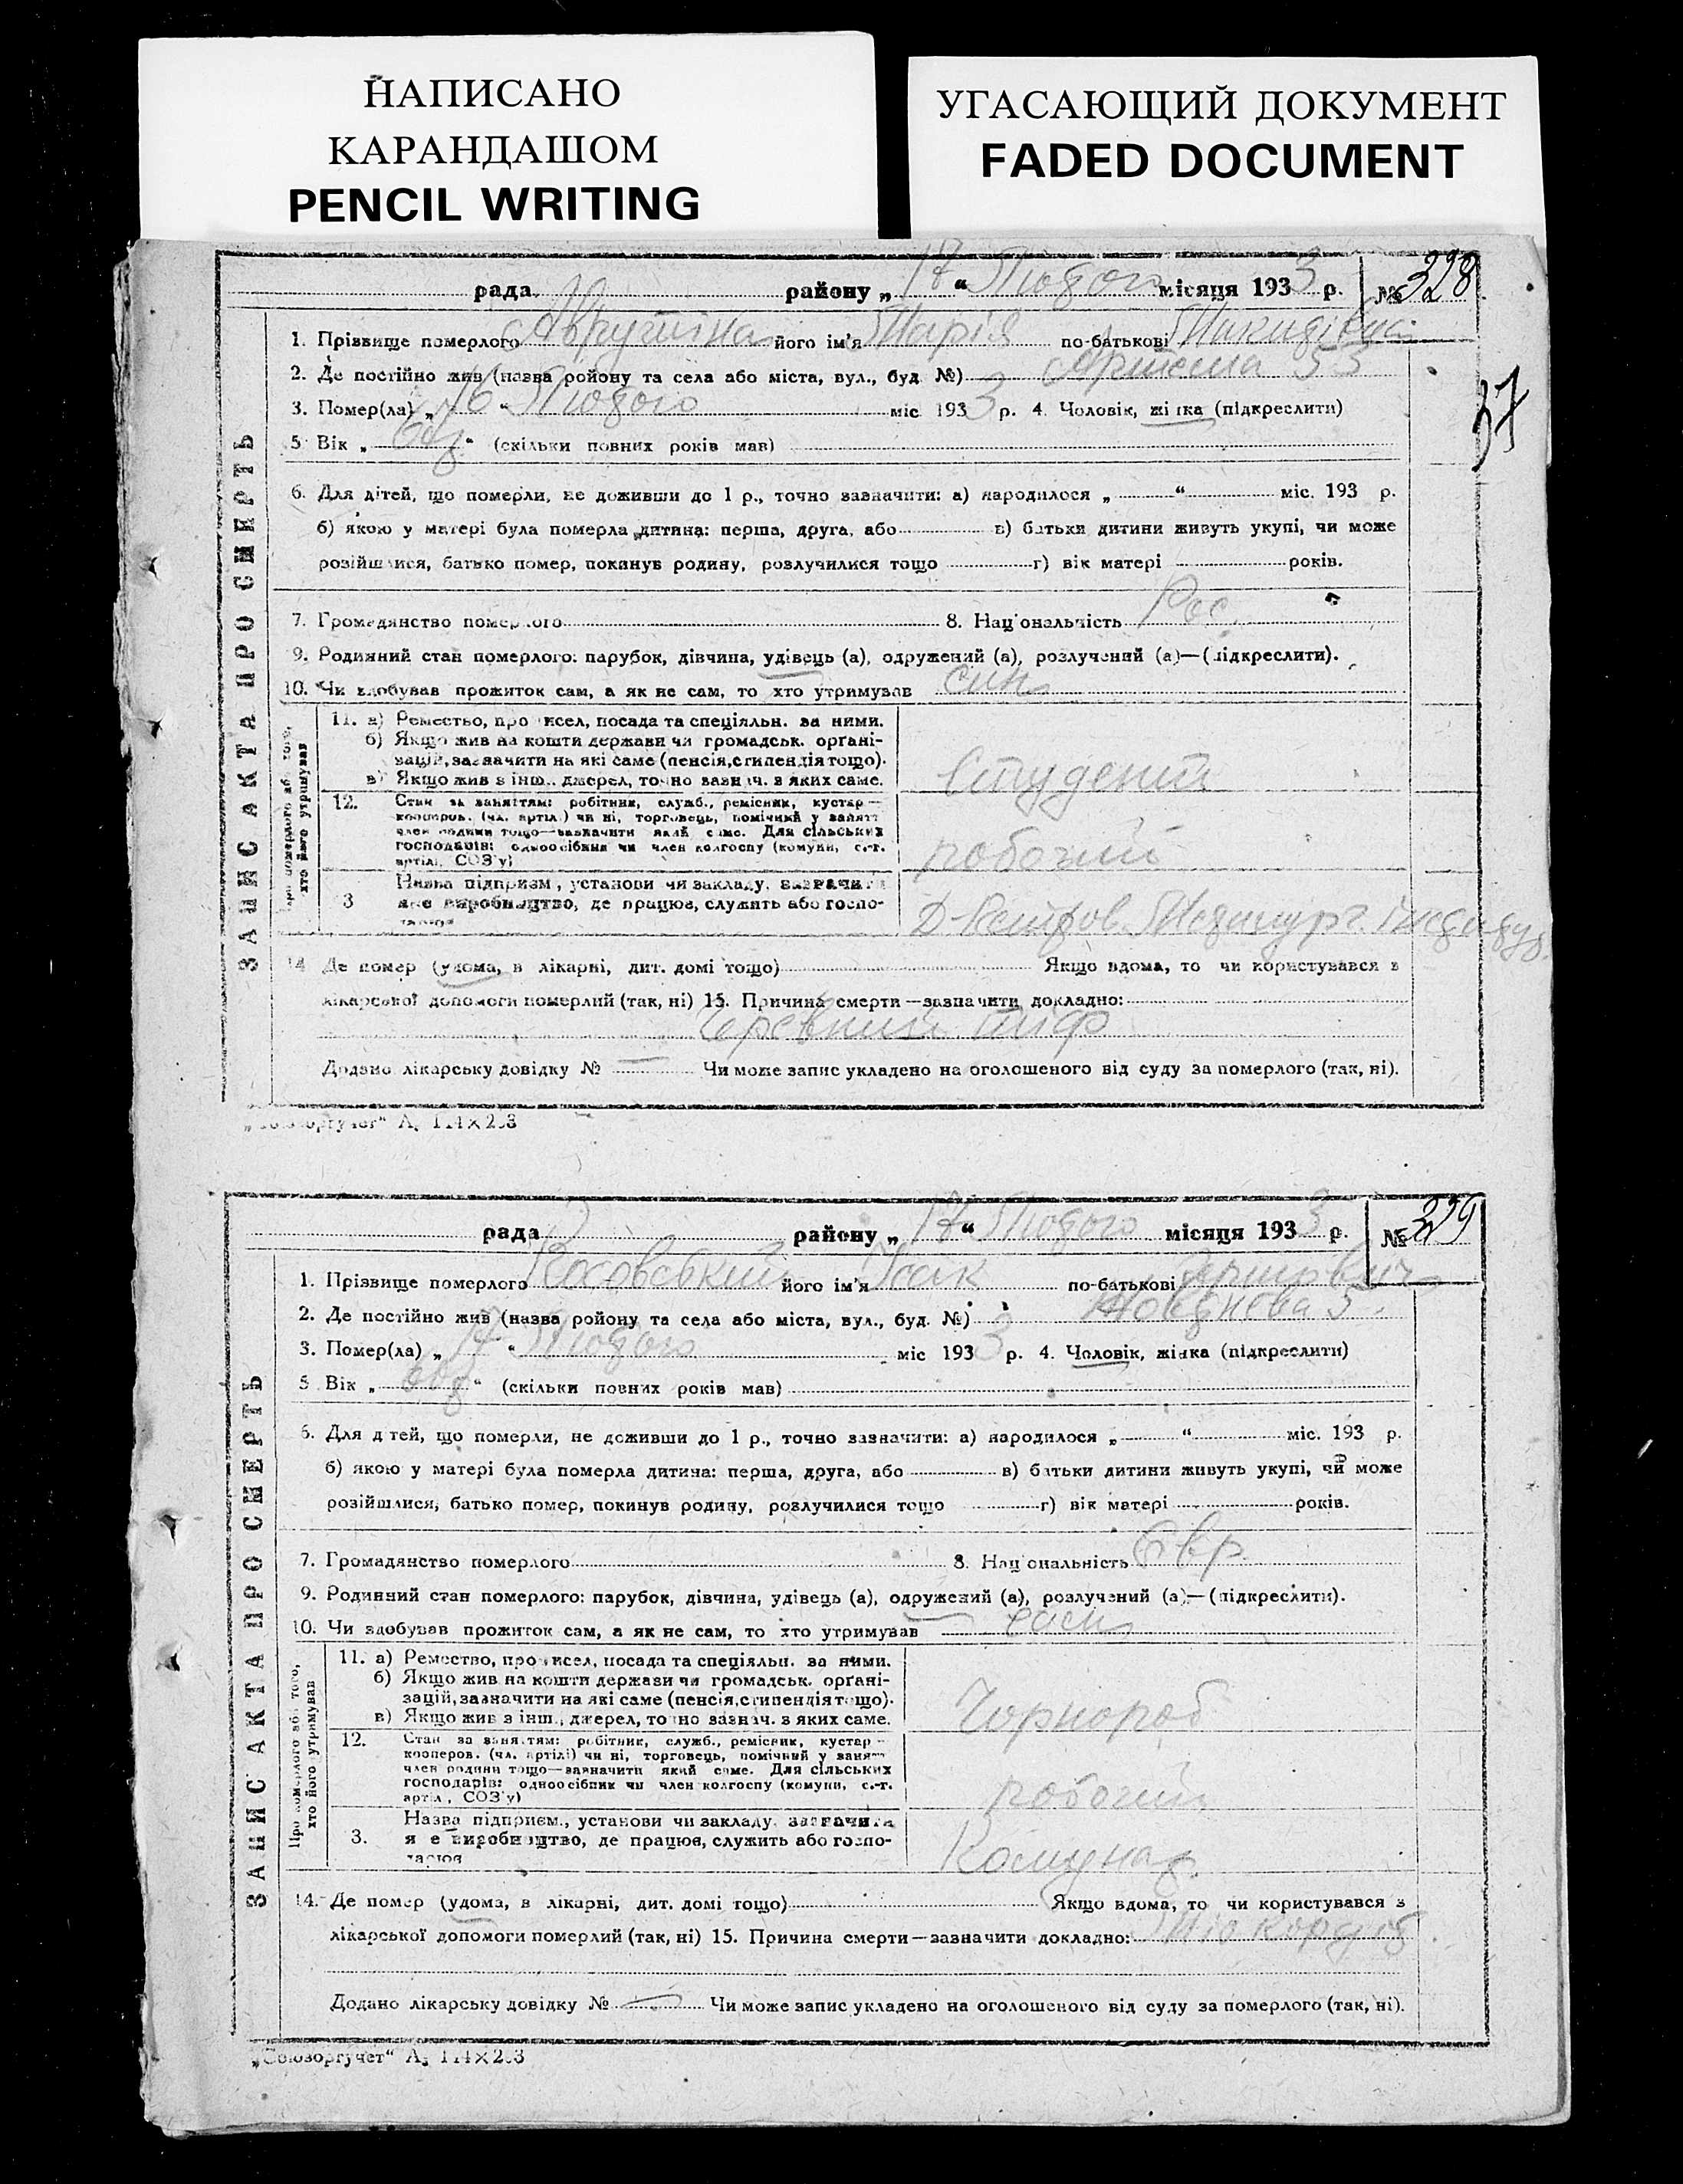 НАПИСАНО
КАРАНДАШОМ
PENCIL WRITING
УГАСАЮЩИЙ ДОКУМЕНТ
FADED DOCUMENT
рада району „17“ Лютого місяця 1933 р. № 328
1. Прізвище померлого його ім'я Марія по-батькові
2. Де постійно жив (назва району та села або міста, вул., буд. №) Артема 53
37
3. Помер(ла) „16“ Лютого міс 1933 р. 4. Чоловік, жінка (підкреслити)
5 Вік „ “ (скільки повних років мав)
6. Для дітей, що померли, не доживши до 1 р., точно зазначити: а) народилося „ “ міс. 193 р.
б) якою у матері була померла дитина: перша, друга, або в) батьки дитини живуть укупі, чи може
розійшлися, батько помер, покинув родину, розлучилися тощо г) вік матері років.
7. Громадянство померлого 8. Національність Рос
9. Родинний стан померлого: парубок, дівчина, удівець (а), одружений (а), розлучений (а)—(підкреслити).
10. Чи здобував прожиток сам, а як не сам, то хто утримував син
ЗАПИС АКТА ПРО СМЕРТЬ
Про померлого або того,
хто його утримував
11. а) Ремество, промисел, посада та спеціяльн. за ними.
б) Якщо жив на кошти держави чи громадськ. органі-
зацій, зазначити на які саме (пенсія, стипендія тощо).
в) Якщо жив з інш. джерел, точно зазнач. з яких саме.
Студент
12. Стан за заняттям: робітник, служб., ремісник, кустар—
кооперов. (чл. артілі) чи ні, торговець, помічний у занятт
член родини тощо—зазначити який саме. Для сільських
господарів: одноосібник чи член колгоспу (комуни, с.-г.
артілі, СОЗ'у)
робочий
3 Назва підприєм., установи чи закладу, зазначити
яке виробництво, де працює, служить або госпо-
дарює
14 Де помер (удома, в лікарні, дит. домі тощо) Якщо вдома, то чи користувався з
лікарської допомоги померлий (так, ні) 15. Причина смерти—зазначити докладно:
Черевний тиф
Додано лікарську довідку № — Чи може запис укладено на оголошеного від суду за померлого (так, ні).
„Союзоргучет“
рада району „17“ Лютого місяця 1933 р. № 329
1. Прізвище померлого Косовський його ім'я Ісак по-батькові
2. Де постійно жив (назва району та села або міста, вул., буд. №) Жовтнева 5.
3. Помер(ла) „17“ Лютого міс 1933 р. 4. Чоловік, жінка (підкреслити)
5 Вік „ “ (скільки повних років мав)
6. Для дітей, що померли, не доживши до 1 р., точно зазначити: а) народилося „ “ міс. 193 р.
б) якою у матері була померла дитина: перша, друга, або в) батьки дитини живуть укупі, чи може
розійшлися, батько помер, покинув родину, розлучилися тощо г) вік матері років.
7. Громадянство померлого 8. Національність Євр
9. Родинний стан померлого: парубок, дівчина, удівець (а), одружений (а), розлучений (а)—(підкреслити).
10. Чи здобував прожиток сам, а як не сам, то хто утримував сам
ЗАПИС АКТА ПРО СМЕРТЬ
Про померлого або того,
хто його утримував
11. а) Ремество, промисел, посада та спеціяльн. за ними.
б) Якщо жив на кошти держави чи громадськ. органі-
зацій, зазначити на які саме (пенсія, стипендія тощо).
в) Якщо жив з інш., джерел, точно зазнач. з яких саме.
Чорнороб
12. Стан за заняттям: робітник, служб., ремісник, кустар—
кооперов. (чл. артілі) чи ні, торговець, помічний у занятт
член родини тощо—зазначити який саме. Для сільських
господарів: одноосібник чи член колгоспу (комуни, с.-г.
артілі, СОЗ'у)
робочий
3. Назва підприєм., установи чи закладу, зазначити
яке виробництво, де працює, служить або госпо-
дарює
14. Де помер (удома, в лікарні, дит. домі тощо) Якщо вдома, то чи користувався з
лікарської допомоги померлий (так, ні) 15. Причина смерти—зазначити докладно: Міокордіт
Додано лікарську довідку № — Чи може запис укладено на оголошеного від суду за померлого (так, ні).
„Союзоргучет“